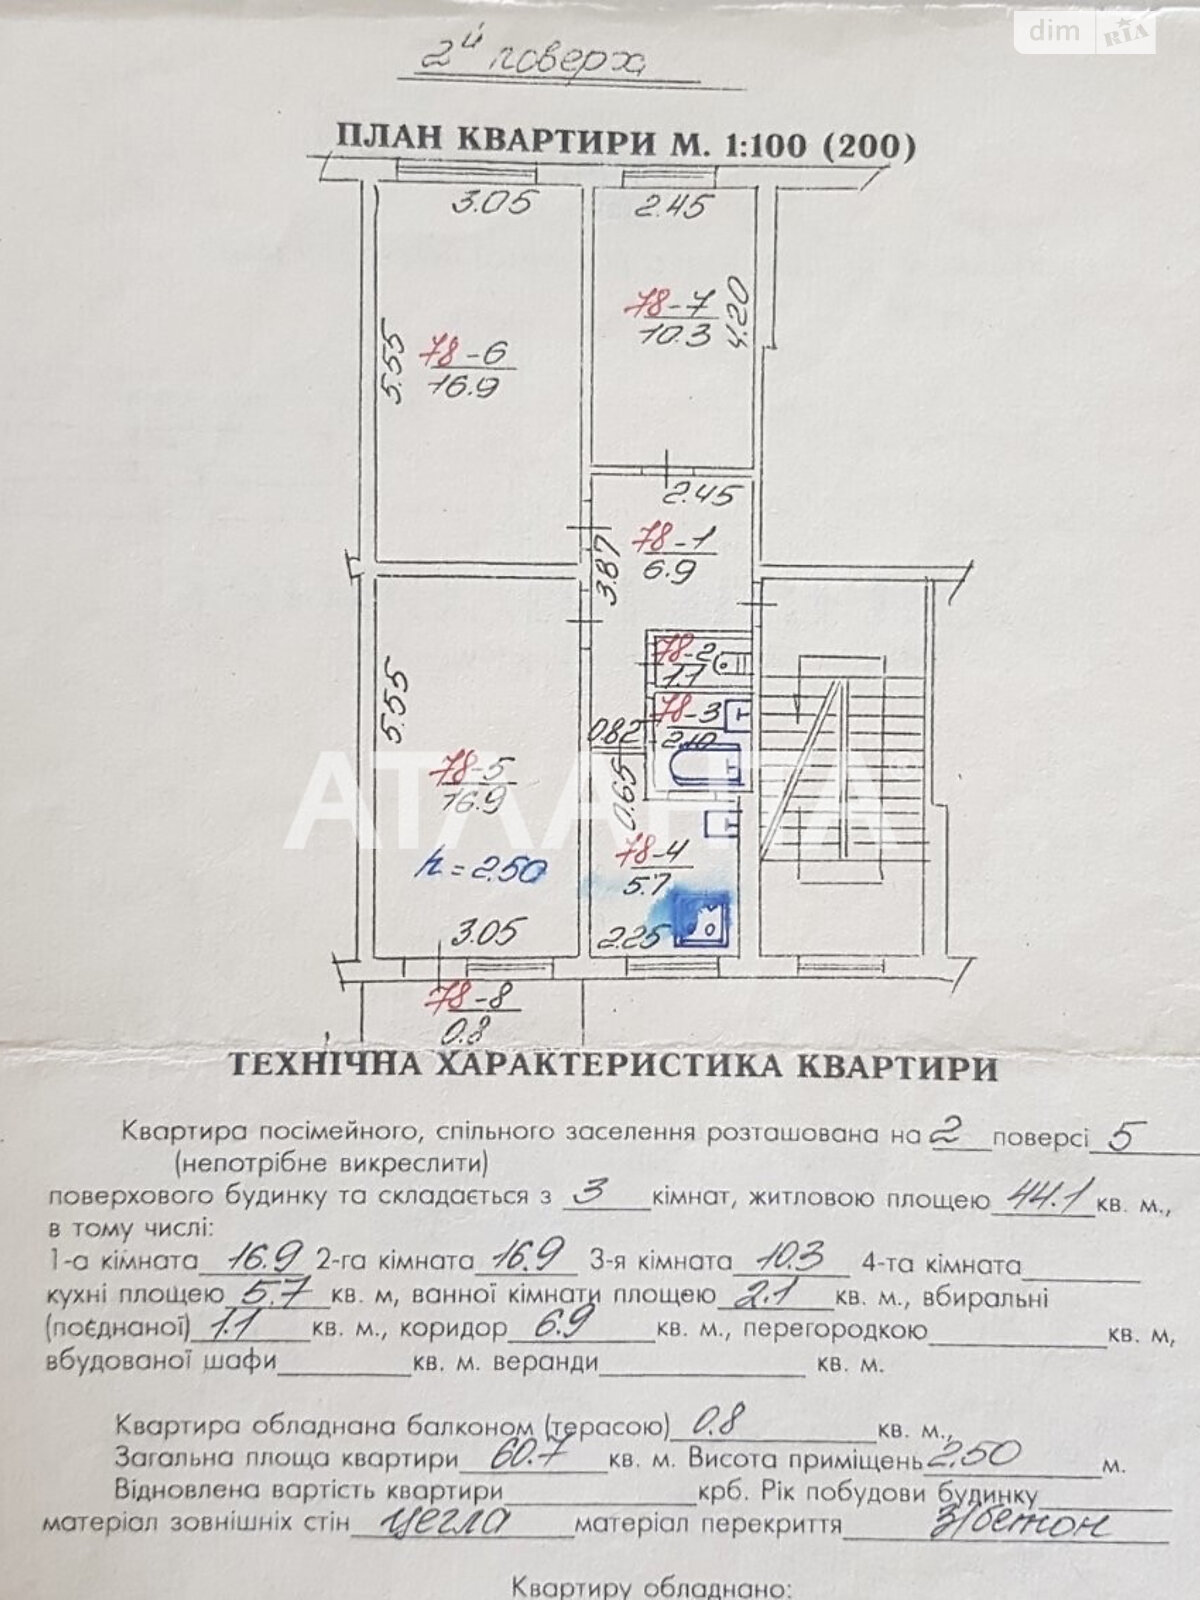 dim RIA
2й поверх
ПЛАН КВАРТИРИ М. 1:100 (200)
3.05
2.45
78-7
10.3
4.20
5.55
78-6
16.9
2.45
78-1
6.9
3.87
78-2
1.1
78-3
2.10
0.82
0.65
5.55
78-5
16.9
АТЛАНТА
78-4
5.7
h=2.50
3.05
2.25
78-8
0.8
ТЕХНІЧНА ХАРАКТЕРИСТИКА КВАРТИРИ
Квартира посімейного, спільного заселення розташована на 2 поверсі 5
(непотрібне викреслити)
поверхового будинку та складається з 3 кімнат, житловою площею 44.1 кв. м.,
в тому числі:
1-а кімната 16.9 2-га кімната 16.9 3-я кімната 10.3 4-та кімната
кухні площею 5.7 кв. м, ванної кімнати площею 2.1 кв. м., вбиральні
(поєднаної) 1.1 кв. м., коридор 6.9 кв. м., перегородкою кв. м,
вбудованої шафи кв. м. веранди кв. м.
Квартира обладнана балконом (терасою) 0.8 кв. м.,
Загальна площа квартири 60.7 кв. м. Висота приміщень 2.50 м.
Відновлена вартість квартири крб. Рік побудови будинку
матеріал зовнішніх стін цегла матеріал перекриття з/бетон
Квартиру обладнано: